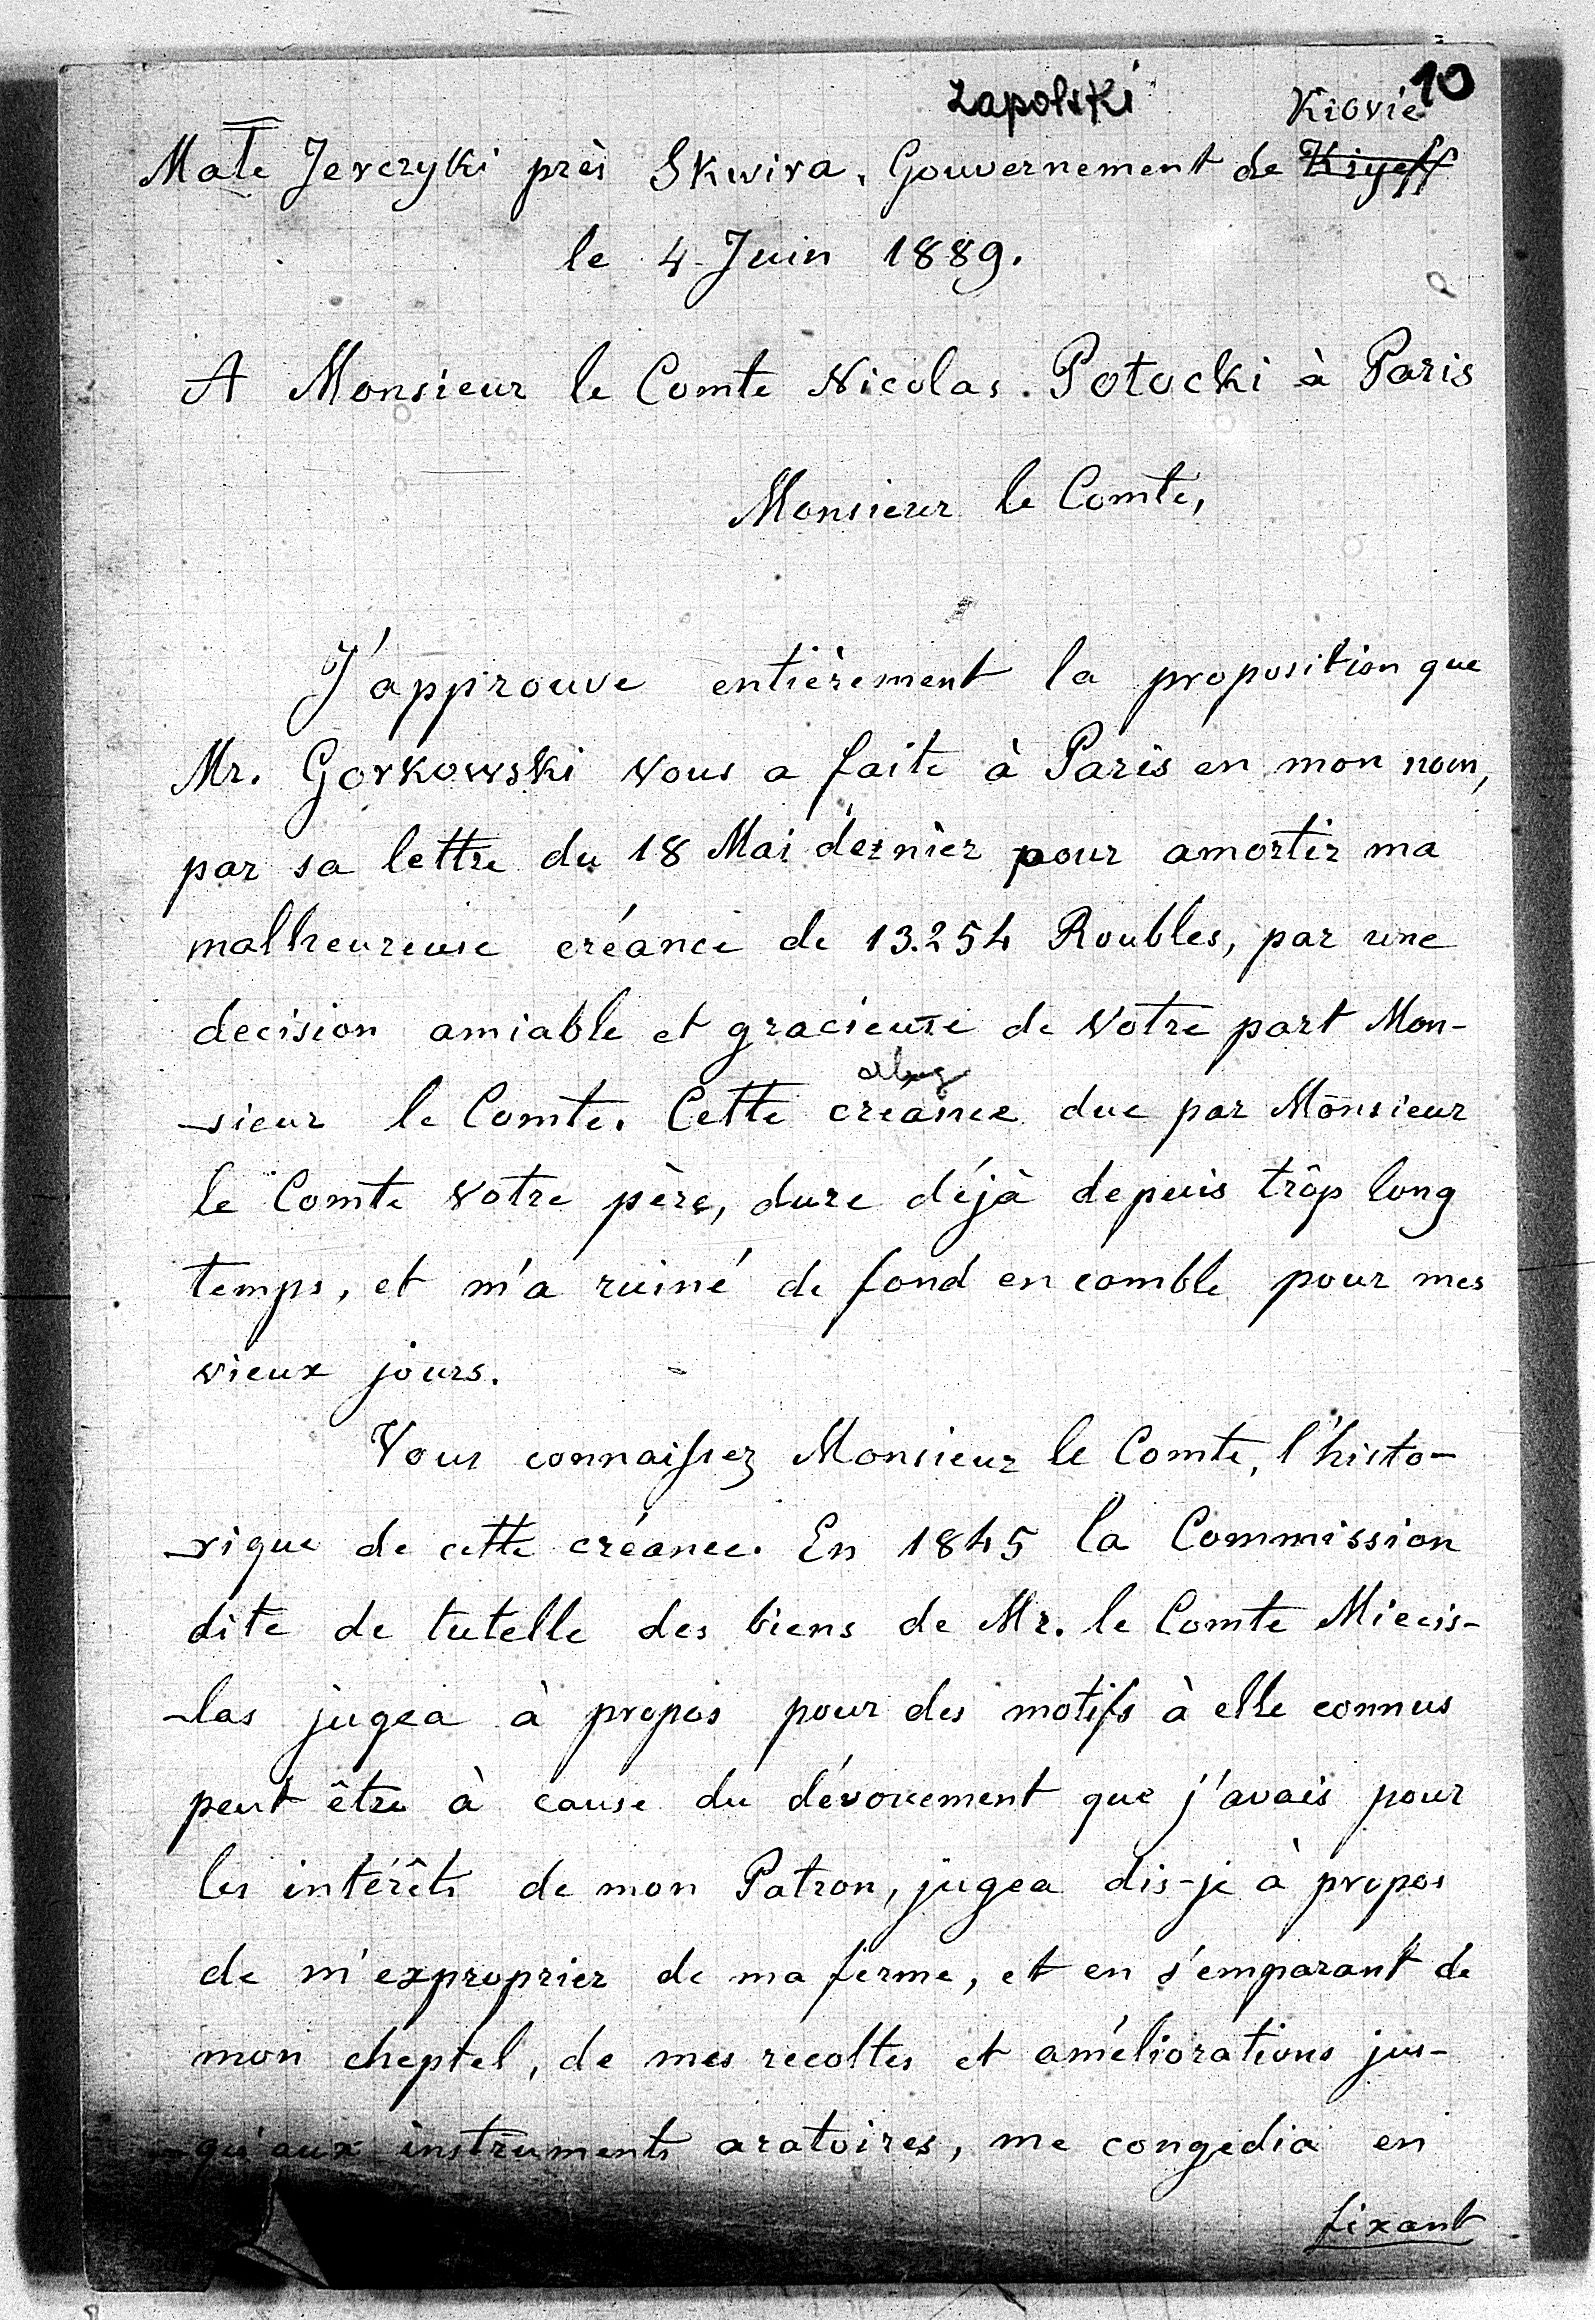 Zapolski
10
Kiovie
Małe Jerczyki près Skwira, Gouvernement de Kiyeff
le 4 Juin 1889.
A Monsieur le Comte Nicolas Potocki à Paris
Monsieur le Comte,
J'approuve entièrement la proposition que
Mr. Gorkowski vous a faite à Paris en mon nom,
par sa lettre du 18 Mai dernièr pour amortir ma
malheureuse créance de 13.254 Roubles, par une
decision amiable et gracieuse de votre part Mon-
-sieur le Comte. Cette créance due par Monsieur
le Comte votre père, dure déjà depuis trôp long
temps, et m'a ruiné de fond en comble pour mes
vieux jours.
Vous connaissez Monsieur le Comte, l'histo-
-rique de cette créance. En 1845 la Commission
dite de tutelle des biens de Mr. le Comte Miecis-
-las jugea à propos pour des motifs à elle connus
peut être à cause du dévouement que j'avais pour
les intérêts de mon Patron, jugea dis-je à propos
de m'exproprier de ma ferme, et en s'emparant de
mon cheptel, de mes recoltes et améliorations jus-
-qu'aux instruments aratoires, me congedia en
fixant